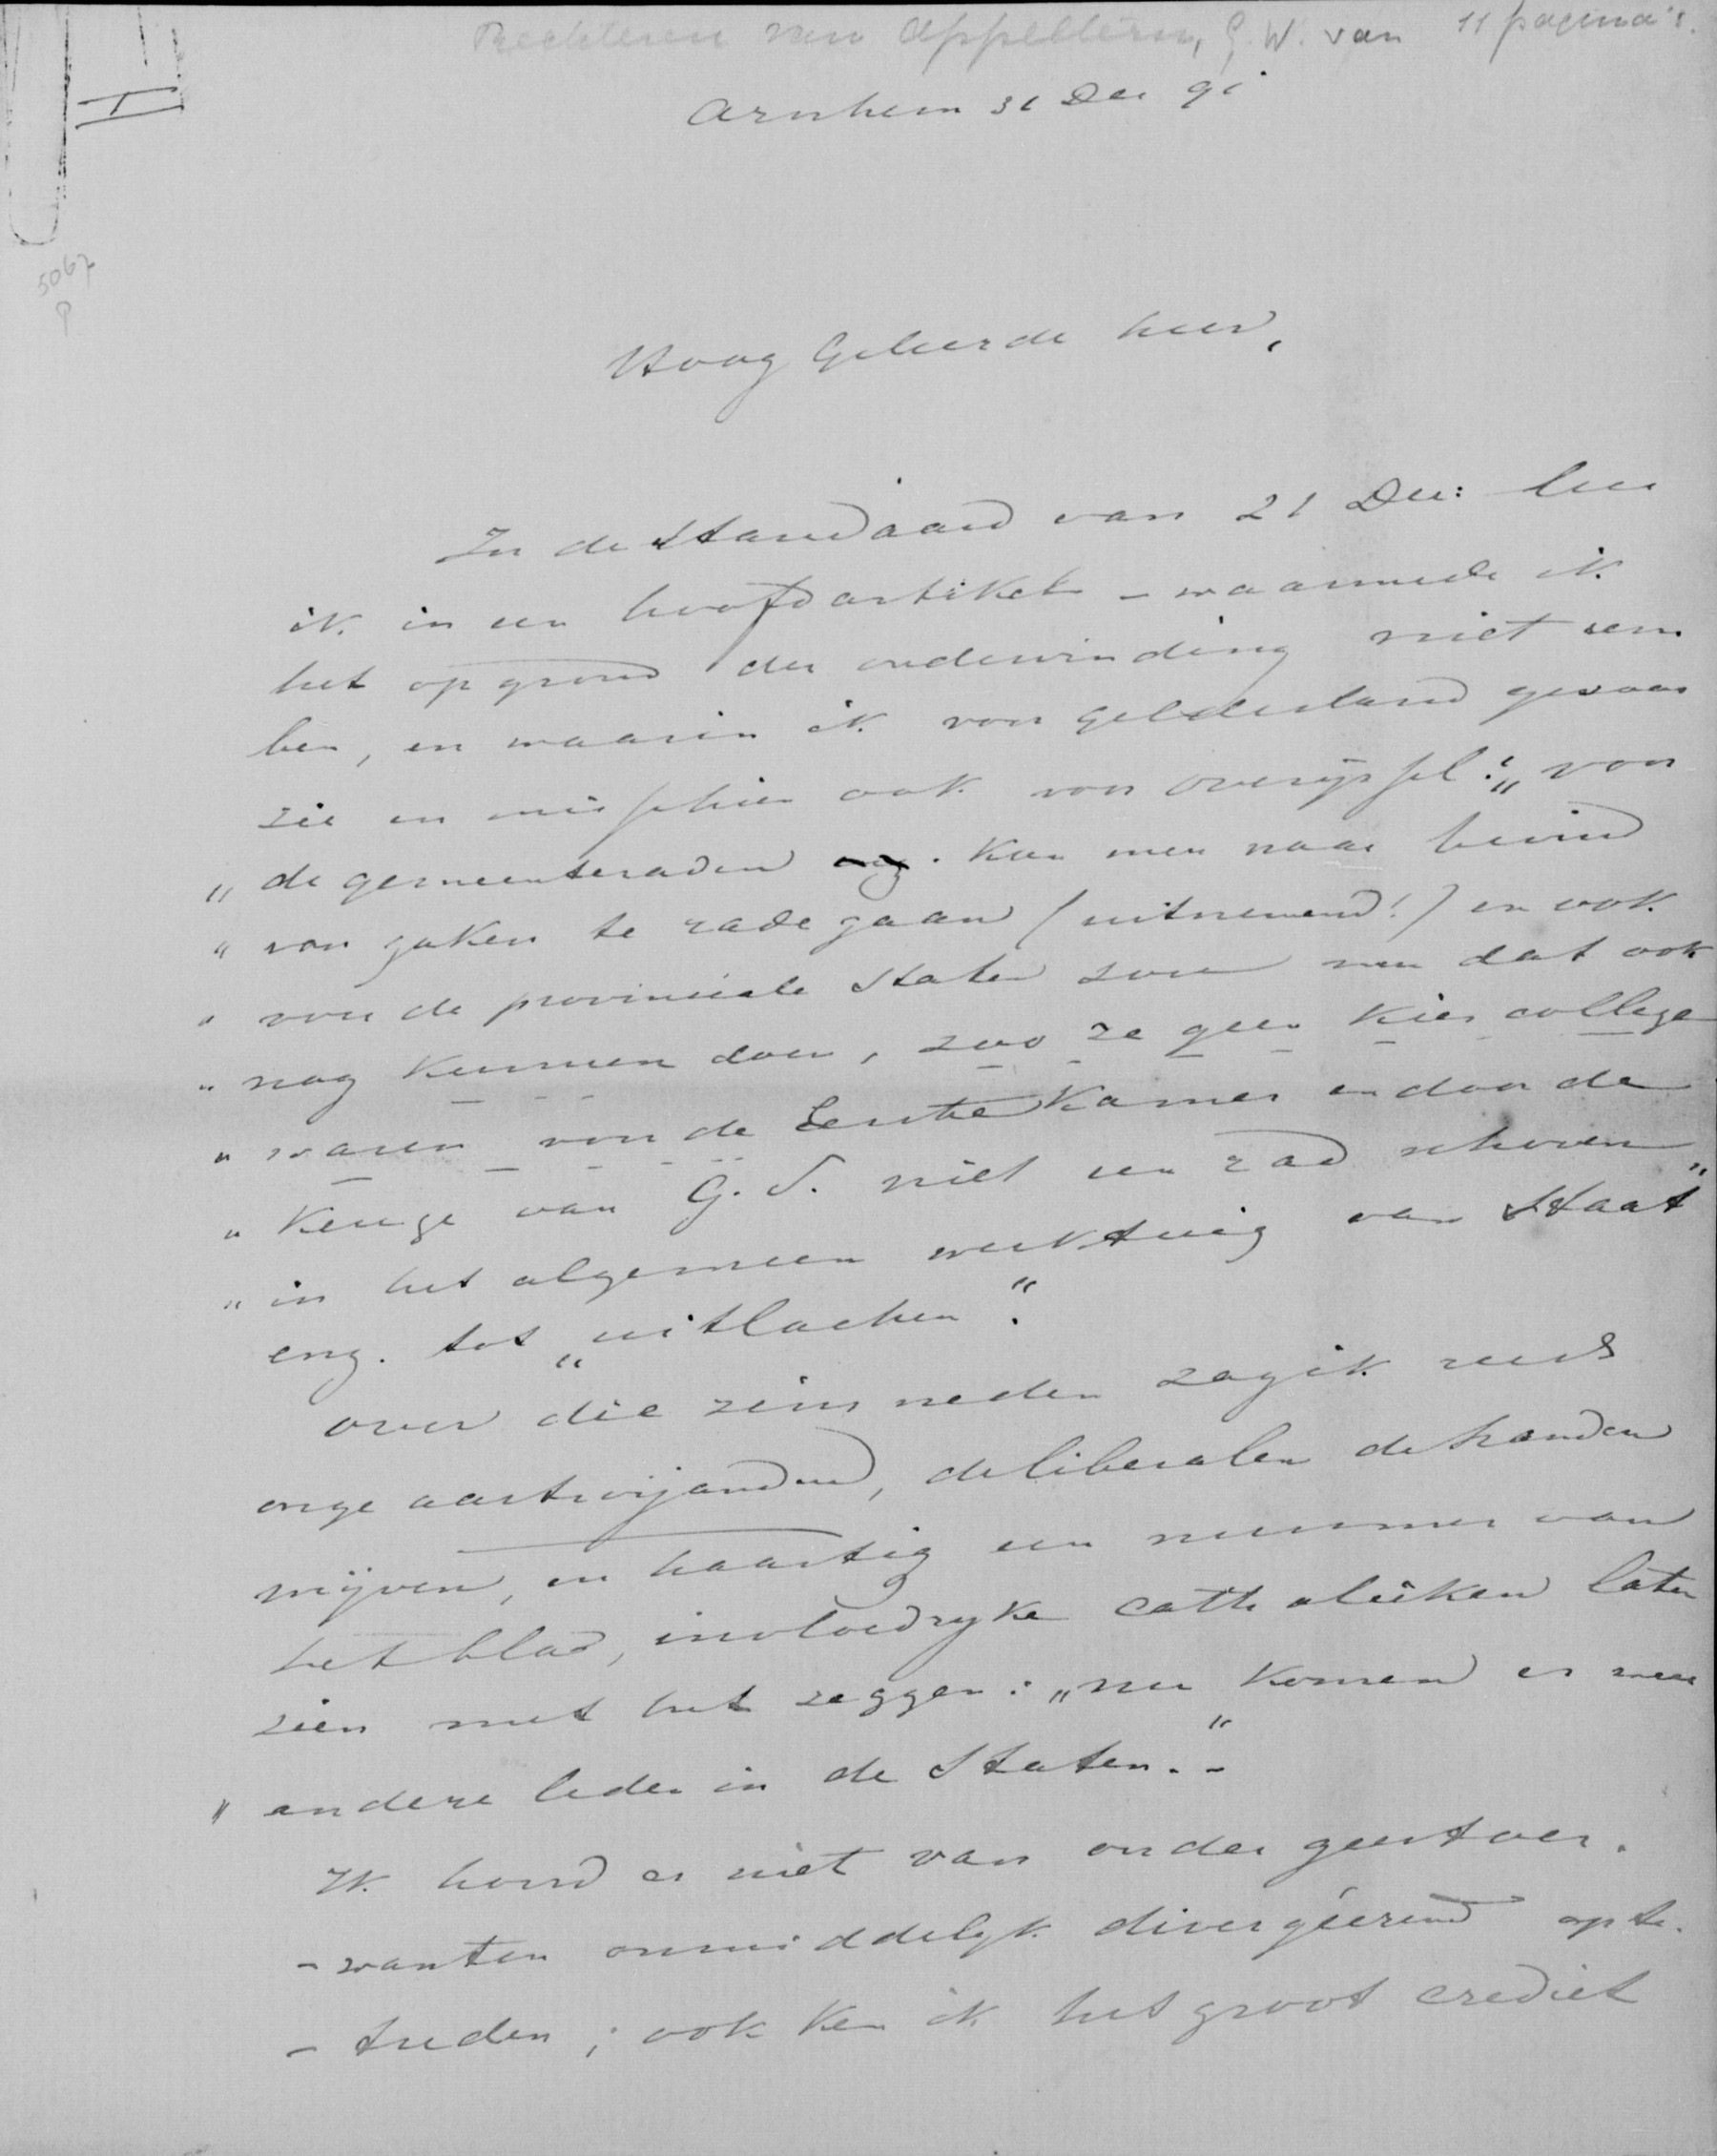 Rechteren van Appeltern, G. W. van 11 pagina's.
II
Arnhem 31 Dec 91
5067
P
Hoog Geleerde heer,
In de Standaard van 21 Dec: lees
ik in een hoofdartikel – waarmede ik
het op grond der ondervinding niet eens
ben, en waarin ik voor Gelderland gevaar
zie en misschien ook voor Overijssel: „voor
„ de gemeenteraden kan men naar bevind
„ van zaken te rade gaan (uitnemend!) en ook
„ voor de provinciale Staten zou men dat ook
„ nog kunnen doen, zoo ze geen kiescollege
„ waren voor de Eerste Kamer en door de
„ keuze van G. S. niet een rad schoven
„ in het algemeen werktuig van Staat"
enz. tot „uitlachen".
over die zinsneden zag ik reeds
onze aartsvijanden, de liberalen de handen
wrijven, en haastig een nummer van
het blad, invloedryke catholieken laten
zien met het zeggen: „nu komen er weer
„ andere leden in de Staten."-
Ik houd er niet van onder geestver-
-wanten onmiddelyk divergéerend op te-
-treden; ook ken ik het groot crediet